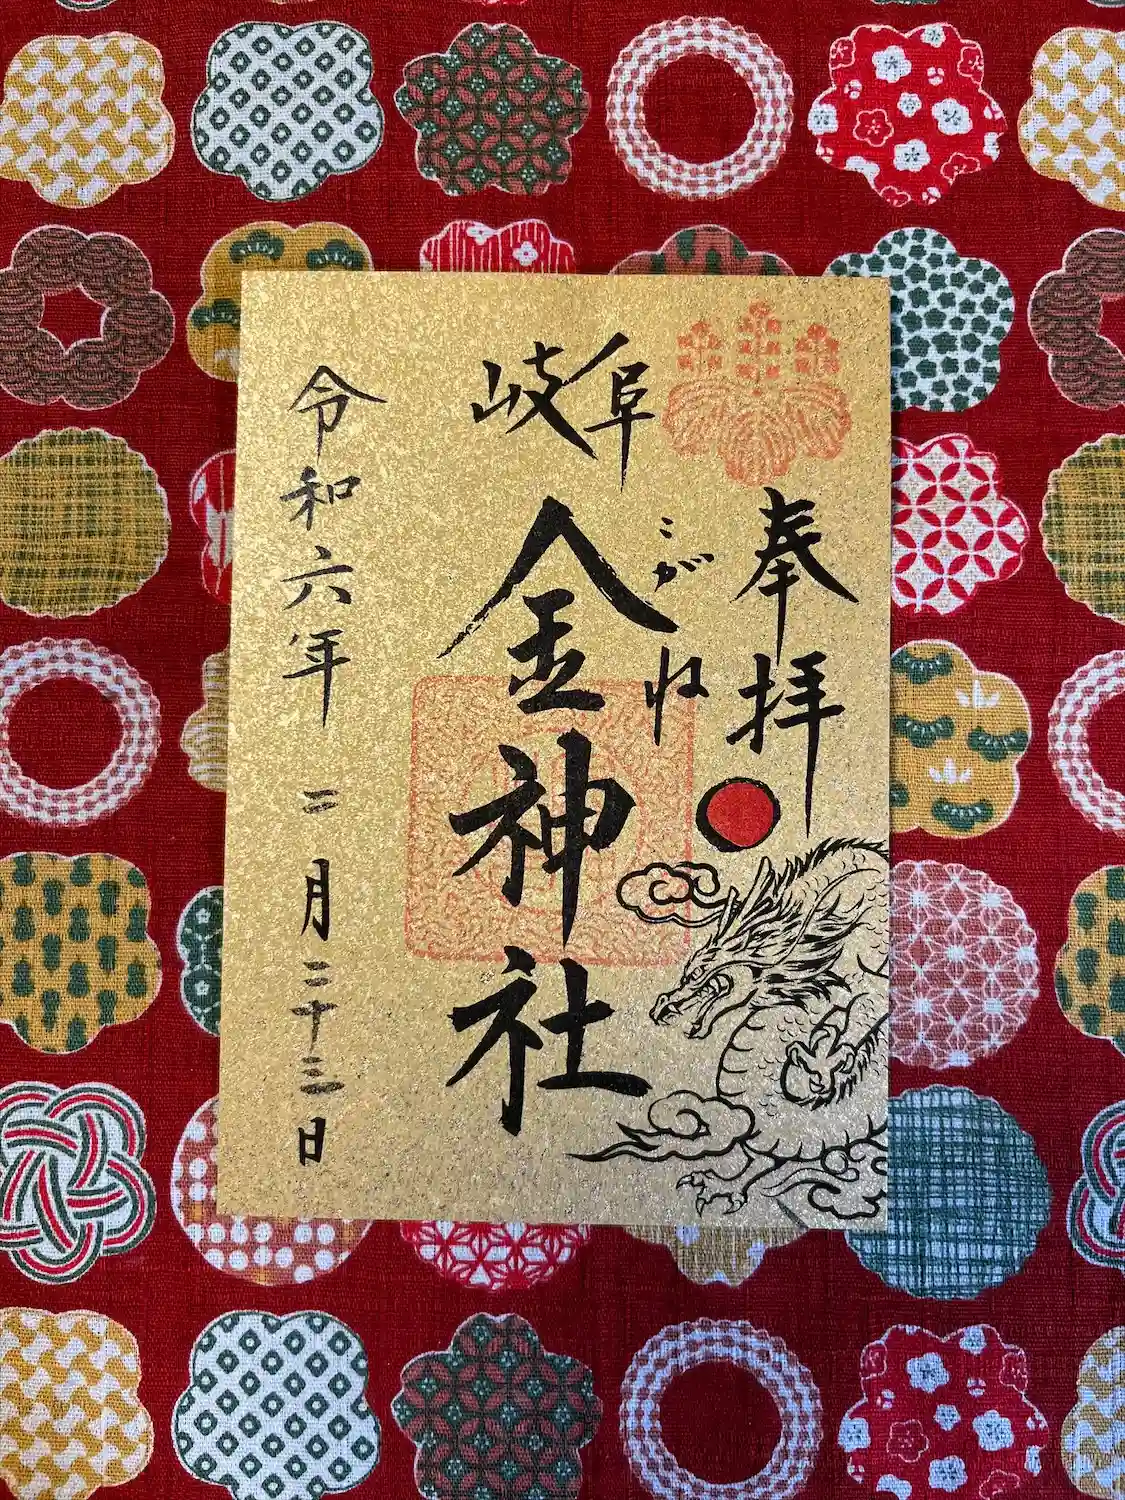 奉拝
岐阜
こがね
金神社
令和六年二月二十三日